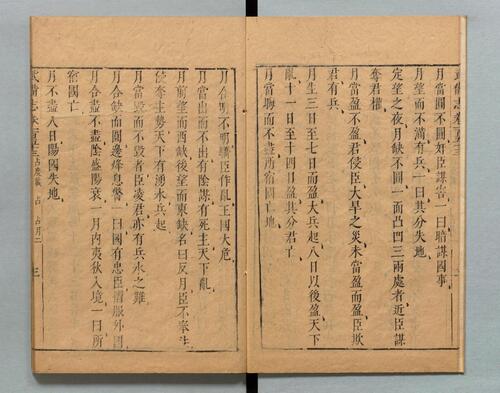 月當圓不圓奸臣謀害一曰暗謀國事
月望而不滿有兵一曰其分失地
定望之夜月缺不圓一面凸凹三兩處者近臣謀
奪君權
月當盈不盈君侵臣大旱之災未當盈而盈臣欺
君有兵
月生三日至七日而盈大兵起八日以後盈天下
亂十一日至十四日盈其分君亡
月當晦而不盡所宿國亡地
月合明不明歸臣作亂王國大危
月當出而不出有陰謀有死主天下亂
月前望而西缺後望而東缺名曰反月臣不奉法
侵奪主勢天下有湧水兵起
月當毀而不毀者臣凌君亦有兵水之難
月合缺而圓邊烽息警一曰國有忠臣清服外國
月合盡不盡陰盛陽衰一月內夷狄入境一曰所
宿國亡
月不盡八日陽國失地
武備志 占度載 占 占月二 三